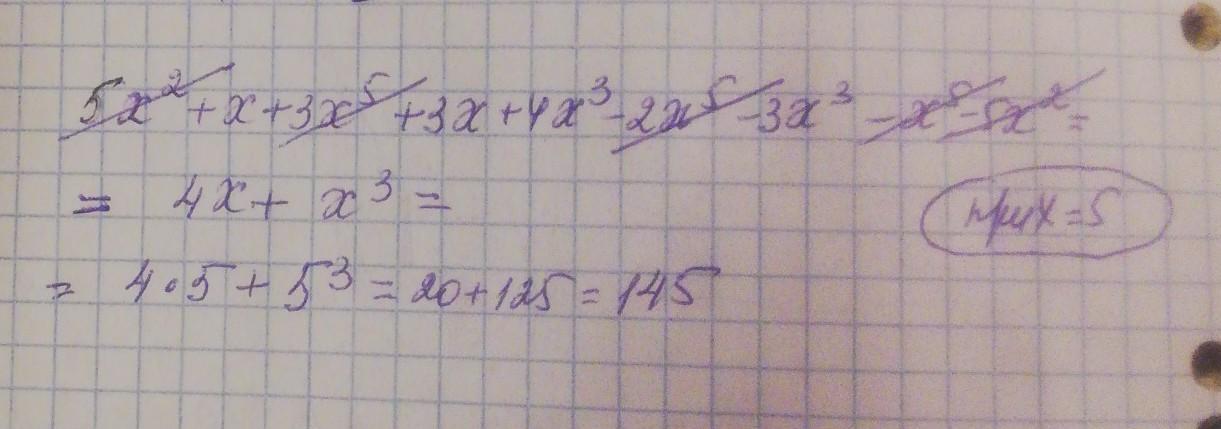 5x² + x + 3x⁵ + 3x + 4x³ - 2x⁵ - 3x³ - x⁵ - 5x² =
= 4x + x³ =
при x = 5
= 4·5 + 5³ = 20 + 125 = 145